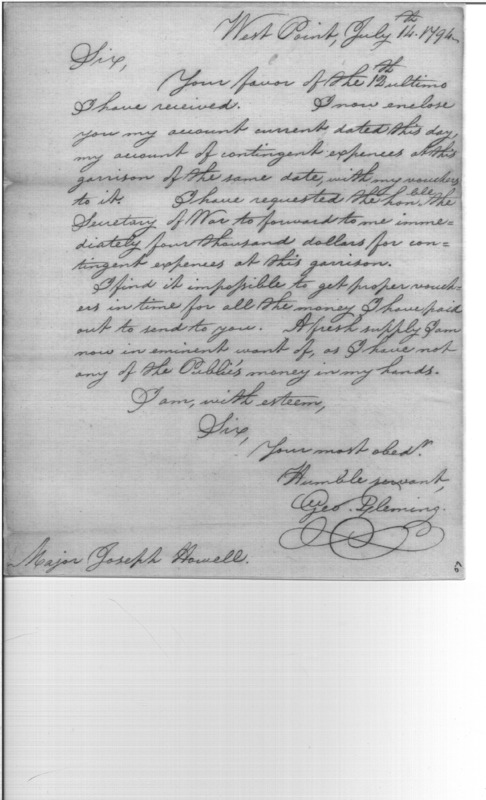 West Point, July 14th. 1794.
Sir,
Your favor of the 12th ultimo
I have received. I now enclose
you my account current dated this day,
my account of contingent expences at this
garrison of the same date, with my vouchers
to it. I have requested the honble. the
Secretary of War to forward to me imme=
diately four thousand dollars for con=
tingent expences at this garrison.
I find it impossible to get proper vouch=
ers in time for all the money I have paid
out to send to you. A fresh supply I am
now in eminent want of, as I have not
any of the Public's money in my hands.
I am, with esteem,
Sir,
Your most obedt.
Humble servant,
Geo. Fleming.
Major Joseph Howell.